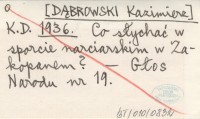 a [DĄBROWSKI Kazimierz]
K.D. 1936. Co słychać w
sporcie narciarskim w Za-
kopanem? — Głos
Narodu nr 19.